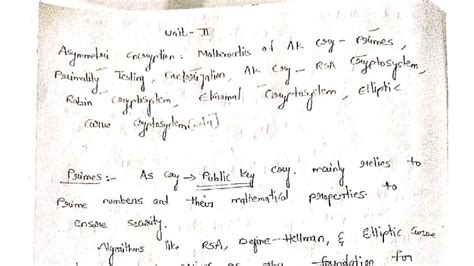 Unit - II
Asymmetric Encryption : Mathematics of AK Cry - Primes,
Primality Testing, Factorization, AK Cry - RSA Cryptosystem,
Rabin cryptosystem, Elgamal Cryptosystem, Elliptic
Curve cryptosystem
Primes :- As cry → Public Key cry. mainly relies to
Prime numbers and their mathematical properties. to
ensure security.
Algorithms like RSA, Deffie-Hellman, & Elliptic Curve
the foundation for